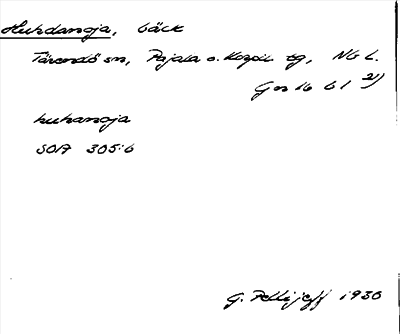 Huhdanoja, bäck
Tärendö sn, Pajala o. Korpil. tg, Nb L.
Gok 16 b 1 2)
huhanoja
SOA 305:6
G. Pellijeff 1930